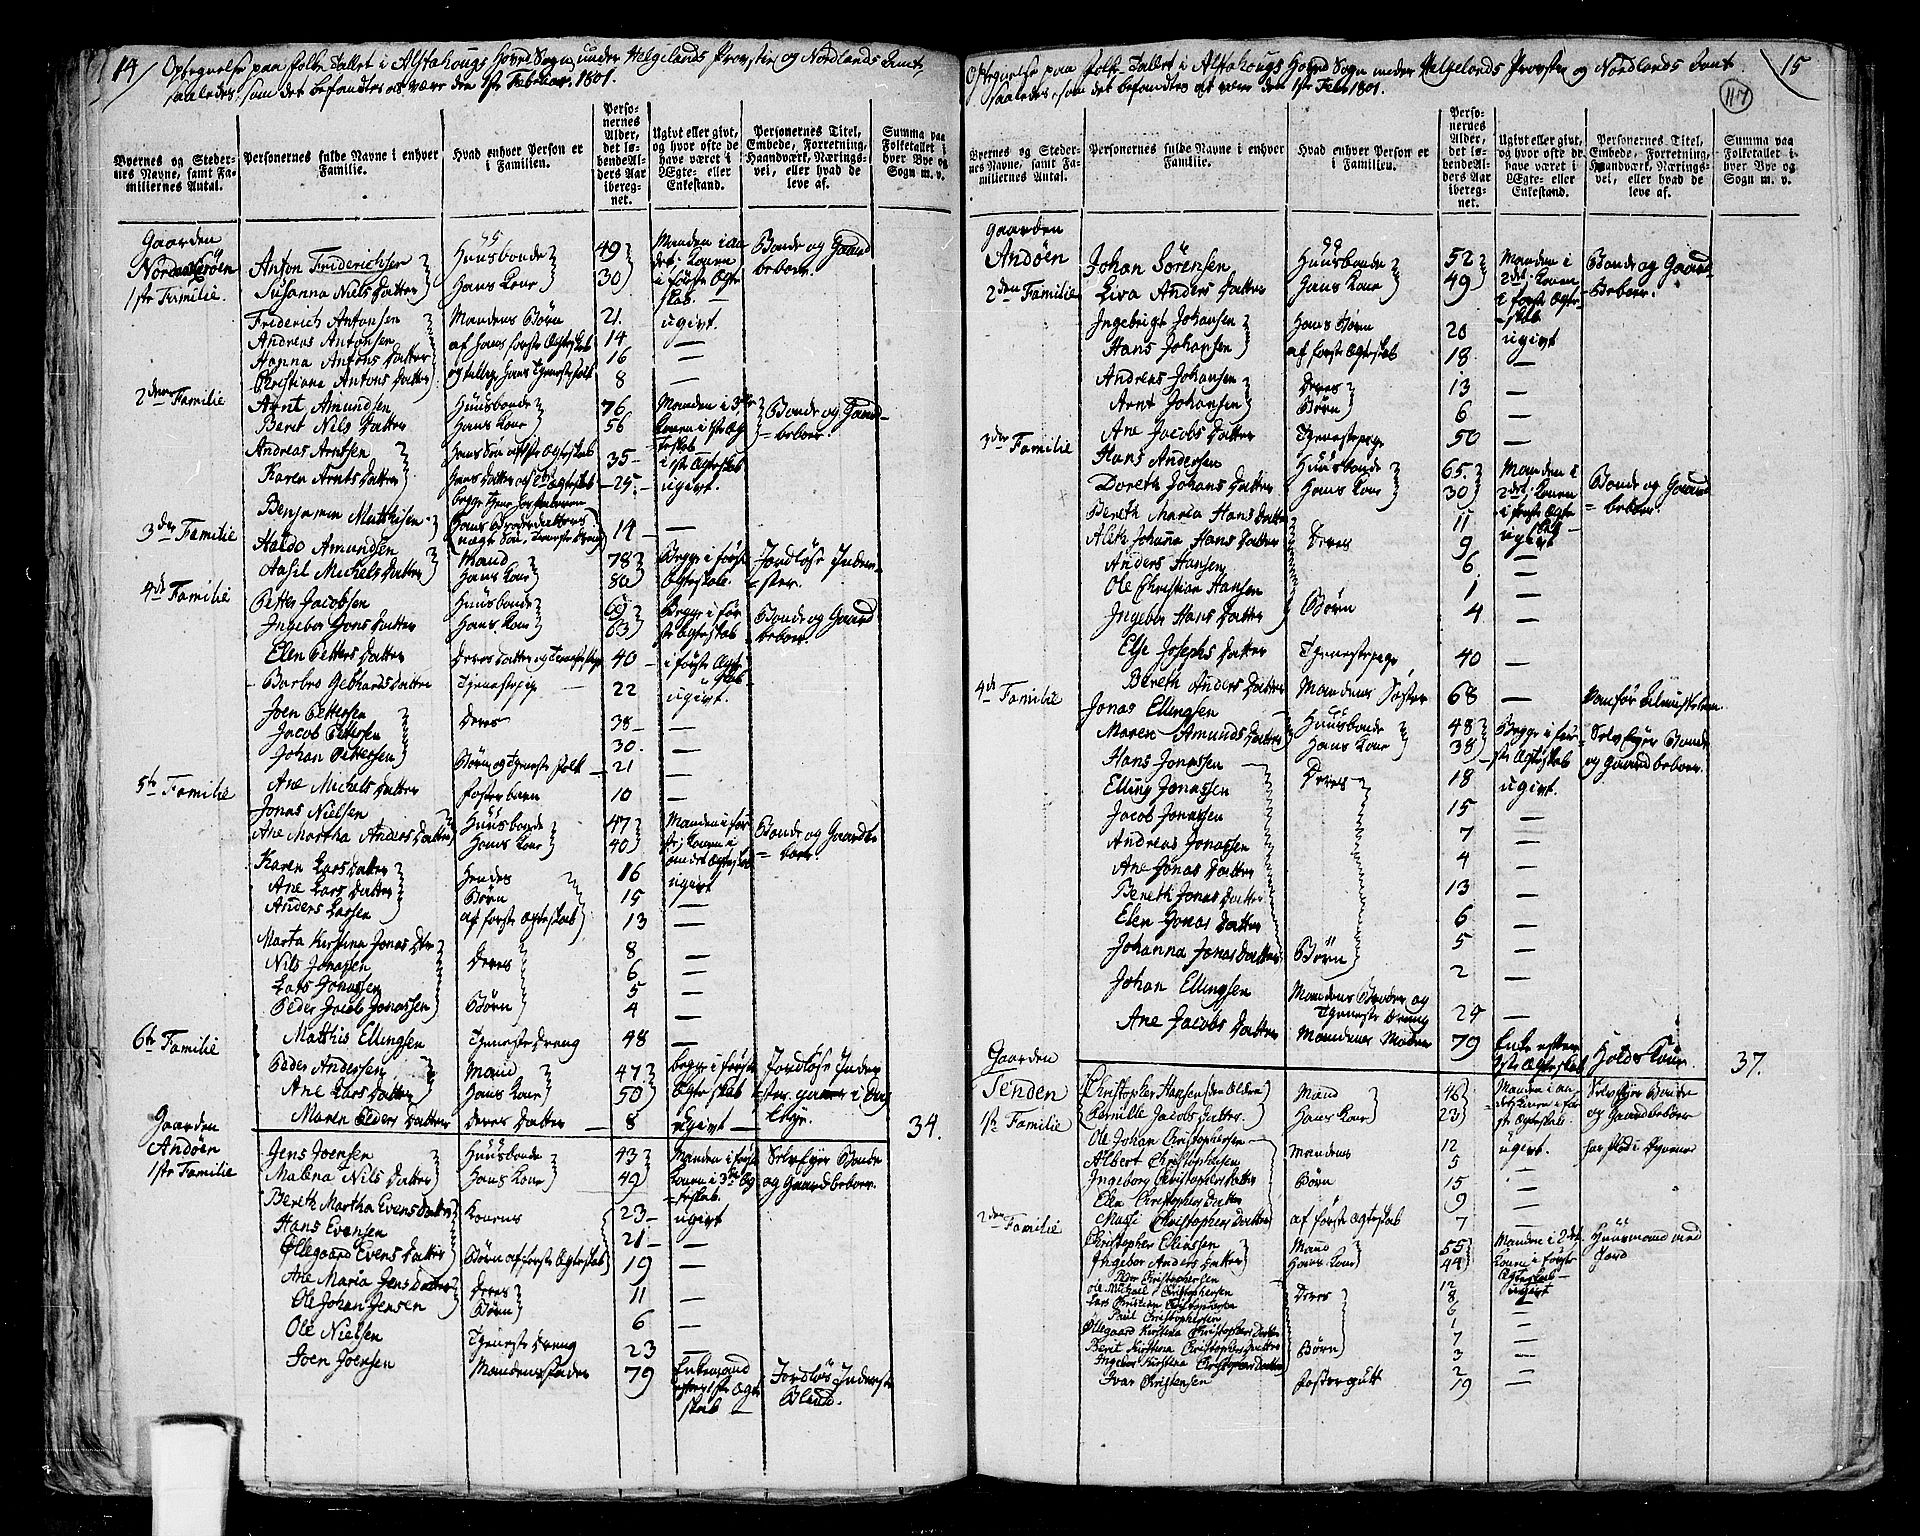 14/ Opbegnelse paa Folke Tallet i Alstahougs Hoved Sogn under Helgelands Provstie og Nordlands Amt,
saaledes, som det befandtes at være den 1ste Februar. 1801.
Byernes og Stedernes Navne, samt Familiernes Antal.
Personernes fulde Navne i enhver Familie.
Hvad enhver Person er i Familien.
Personernes Alder, det løbende Alders Aar iberegnet.
Ugivt eller givt, og hvor ofte de have været i Ægte- eller Enkestand.
Personernes Titel, Embede, Forretning, Haandværk, Næringsvei, eller hvad de leve af.
Summa paa Folketallet i hver Bye og Sogn m. v.
55
Gaarden
Nord
1ste Familie.
Anton Friderichsen Huusbonde 49 Manden i an- Bonde og Gaard
Susanna Niels Datter Hans Kone 30 det, Konen beboer
i første Ægte
skab
Friderich Antonsen Mandens Børn 21. ugivt.
Andreas Antonsen af Hans første Ægteskab 14 —
Hanna Antons Datter og tillig Hans Tienestefolk 16 —
Christiana Antons Datter 8 —
2den Familie Arnt Amundsen Huusbonde 76 Manden i 3die Bonde og Gaard
Beret Nils Datter Hans Kone 56 Konen i 1ste Æg beboer.
teskab
Andreas Arntsen Hans Søn af 1ste Ægteskab 35 i 1ste Ægteskab
Karen Arnts Datter Hans Datter af Ægteskab 25. ugivt.
Benjamin Matthisen Hans Broderdatters 14 —
uægte Søn, Tieneste Dreng
3die Familie Haldo Amundsen Mand 78 Begge i første Jordløse Inder-
Aasil Michels Datter Hans Kone 80 Ægteskab. ster.
4de Familie Petter Jacobsen Huusbonde 69 Begge i før Bonde og Gaard
Ingebor Jons Datter Hans Kone 63 ste Ægteskab beboer.
Elen Petters Datter Deres Datter og Tienestepige 40 i første Ægte
skab
Barbro Gebhards Datter Tjenestepige 22 ugivt.
Joen Pettersen Deres 38 —
Jacob Pettersen 30. —
Johan Pettersen Børn og Tjeneste folk 21 —
Ane Michels Datter Fosterbarn 10 —
5te Familie Jonas Nielsen Huusbonde 47 Manden i før Bonde og Gaard
Ane Martha Anders Datter Hans Kone 40 ste, Konen i beboer.
andet Ægteskab
Karen Lars Datter Hendes 16 ugivt
Ane Lars Datter Børn 15 —
Anders Larsen af første Ægteskab 13 —
Marta Kirstina Jonas Dtr 8 —
Nils Jonassen Deres 6 —
Lars Jonassen 5 —
Peder Jacob Jonassen Børn 4 —
Matthis Ellingsen Tjeneste Dreng 48 —
6te Familie Peder Andersen Mand 47 begge i første Jordløse Inder
Ane Lars Datter Hans Kone 50 Ægteskab ster
Maren Peders Datter Deres Datter 8 Ugivt — 34.
Gaarden
Andøen
1ste Familie
Jens Joensen Huusbonde 43 Manden i første Selveyer Bonde
Malena Nils Datter Hans Kone 49 Konen i 3die Æg og Gaardbeboer.
teskab.
Bereth Martha Evens Datter Konens 23 ugivt
Hans Evensen 21 —
Øllegaard Evens Datter Børn af første Ægteskab 19 —
Ane Maria Jens Datter Deres 11 —
Ole Johan Jensen Børn 6 —
Ole Nielsen Tjeneste Dreng 23 —
Joen Joensen Mandens Fader 79 Enkemand Jordløs Inderste
efter 1ste Ægte Blind.
skab
Opbegnelse paa Folke Tallet i Alstahougs Hoved Sogn under Helgelands Provstie og Nordlands Amt 15
saaledes, som det befandtes at være den 1ste Febr 1801.
117
Byernes og Stedernes Navne, samt Familiernes Antal.
Personernes fulde Navne i enhver Familie.
Hvad enhver Person er i Familien.
Personernes Alder, det løbende Alders Aar iberegnet.
Ugivt eller givt, og hvor ofte de have været i Ægte- eller Enkestand.
Personernes Titel, Embede, Forretning, Haandværk, Næringsvei, eller hvad de leve af.
Summa paa Folketallet i hver Bye og Sogn m. v.
Gaarden
Andøen
2den Familie
Johan Sörensen Huusbonde 52 Manden i Bonde og Gaard
Liva Anders Datter Hans Kone 49 2det, Konen Beboer.
i første Ægte
skab
Ingebrigt Johansen Hans Børn 20 ugivt
Hans Johansen af første Ægteskab 18 —
Andreas Johansen Deres 13 —
Arnt Johansen Børn 6 —
Ane Jacobs Datter Tjenestepige 50 —
3die Familie Hans Andersen Huusbonde 65. Manden i Bonde og Gaard
Doreth Johans Datter Hans Kone 30 2det, Konen beboer.
i første Ægte
skab
Bereth Maria Hans Datter 11 ugivt
Alith Johanna Hans Datter Deres 9 —
Anders Hansen 6 —
Ole Christian Hansen 1 —
Ingebor Hans Datter Børn 4 —
Else Josephs Datter Tjenestepige 40 —
Bereth Anders Datter Mandens Søster 68 —
4de Familie Jonas Ellingsen Huusbonde 48 Begge i før Selveyer Bonde
Maren Amunds Datter Hans Kone 38 ste Ægteskab og Gaardbeboer.
Hans Jonassen Deres 18 ugivt.
Elling Jonassen 15 —
Jacob Jonassen 7 —
Andreas Jonassen 4 —
Ane Jonas Datter 13 —
Bereth Jonas Datter 6 —
Elen Jonas Datter 5 —
Johanna Jonas Datter Børn 2 —
Johan Ellingsen Mandens Broder og
Tjeneste Dreng 24 —
Ane Jacobs Datter Mandens Moder 79 Enke efter
1ste Ægteskab 37.
Gaarden
Tenden
1ste Familie
Christopher Hansen den Ældre Mand 46 Manden i an Selveyer Bonde
Pernille Jacobs Datter. Hans Kone 23 det, Konen i før og Gaardbeboer
ste Ægteskab.
Ole Johan Christophersen Mandens 12 ugivt.
Albert Christophersen 5 —
Ingeborg Christophers Datter Børn 15 —
Elen Christophers Datter 9 —
Massi Christophers Datter af første Ægteskab 7 —
2den Familie Christopher Eliassen Mand 55 Manden i 2det Huusmand med
Ingebor Anders Datter Hans Kone 44 Konen i første Jord
Ægteskab
Peder Christophersen 12 ugivt
Ole Michael Christophersen Deres 8 —
Lars Christian Christophersen 6 —
Paul Christophersen 1 —
Øllegaard Kirstina Christophers Datter 7 —
Berit Kirstina Christophers Datter Børn 3 —
Ingebor Kirstina Christophers Datter 2 —
Ivar Christensen Fostergutt 19 —